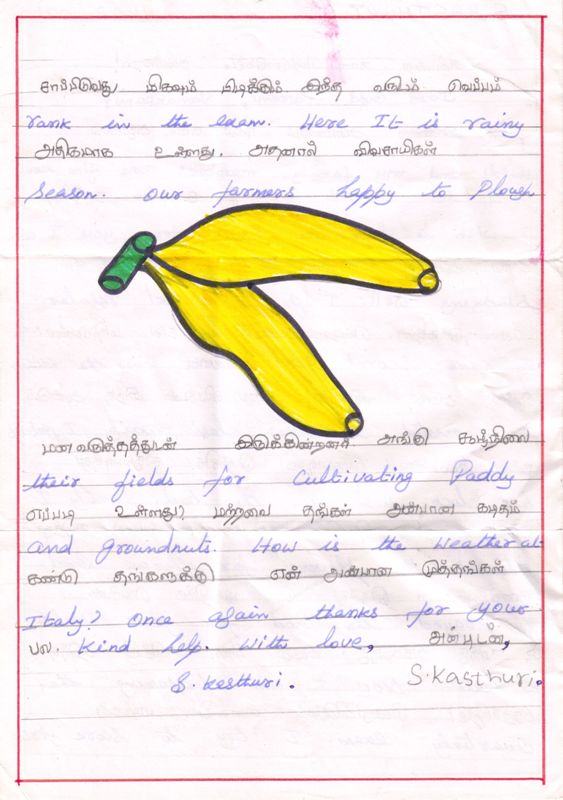 சாப்பிடுவது மிகவும் பிடிக்கும் இந்த வருடம் வெப்பம்
rank in the exam. Here It is rainy
அதிகமாக உள்ளது. அதனால் விவசாயிகள்
Season. Our farmers happy to Plough
மன வருத்தத்துடன் இருக்கின்றனர் அங்கு சூழ்நிலை
their fields for Cultivating Paddy
எப்படி உள்ளது? மற்றவை தங்கள் அன்பான கடிதம்
and groundnuts. How is the weather at
கண்டு தங்களுக்கு என் அன்பான முத்தங்கள்
Italy? Once again thanks for your
பல. Kind help. With love, அன்புடன்,
S. Kesthuri. S. Kasthuri.